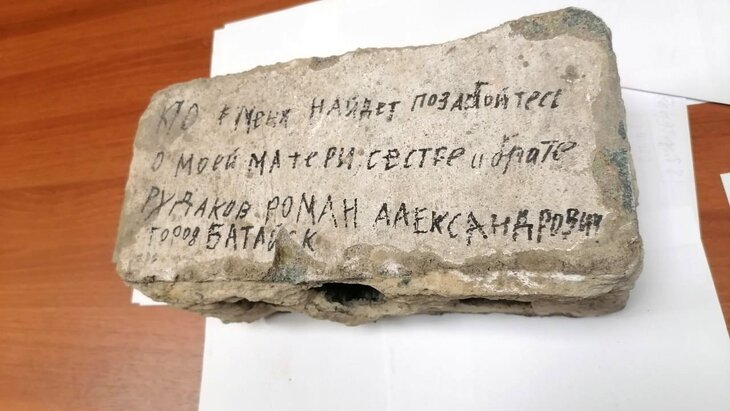 КТО меня НАЙДЕТ ПОЗАБОЙТЕСЬ
О МОЕЙ МАТЕРИ, СЕСТРЕ и брате
РУДАКОВ РОМАН АЛЕКСАНДРОВИЧ
ГОРОД БАТАЙСК